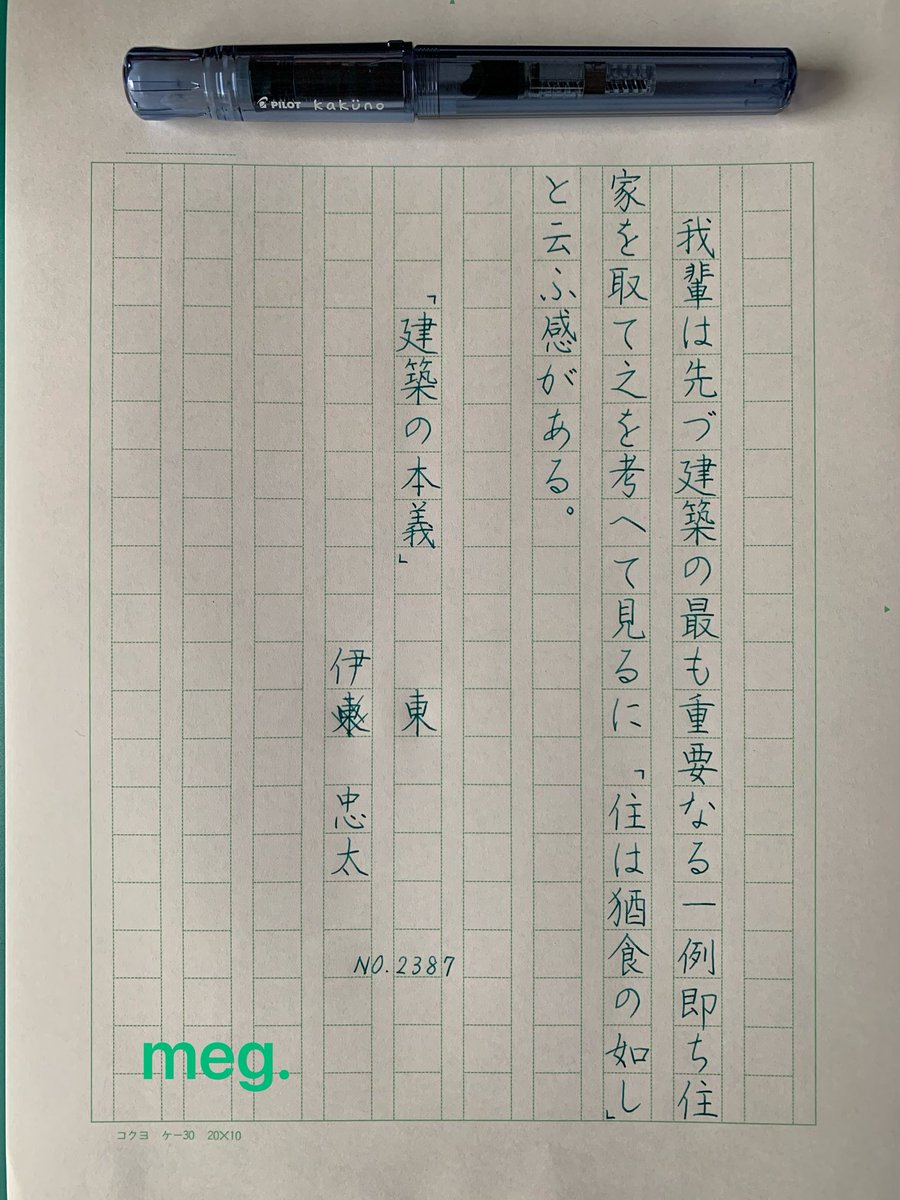 PILOT kaküno
我輩は先づ建築の最も重要なる一例即ち住
家を取て之を考へて見るに「住は猶食の如し」
と云ふ感がある。
「建築の本義」
東
伊東 忠太
NO.2387
meg.
コクヨ ケー30 20×10